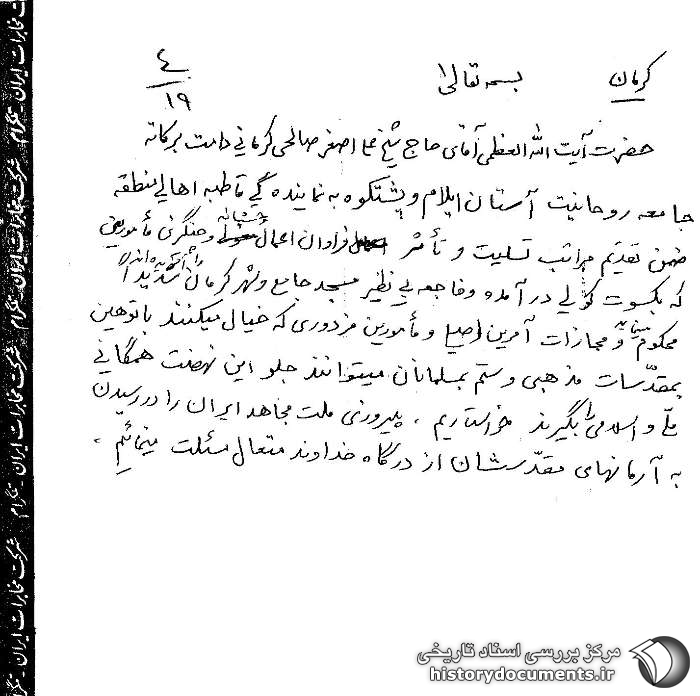 کرمان
بسمه تعالی
۴
۱۹
حضرت آیت الله العظمی آقای حاج شیخ علی اصغر صالحی کرمانی دامت برکاته
جامعه روحانیت آستان ایلام و پشتکوه به نمایندگی قاطبه اهالی منطقه
ضمن تقدیم مراتب تسلیت و تأثر فراوان اعمال وحشیانه و جنگزی مأمورین
که بکسوت کولی درآمده و فاجعه بی نظیر مسجد جامع و شهر کرمان شدیداً
محکوم و مجازات آمرین اصلی و مأمورین مزدوری که خیال میکنند با توهین
بمقدسات مذهبی و ستم بمسلمانان میتوانند جلو این نهضت همگانی
ملی و اسلامی را بگیرند خواستاریم ، پیروزی ملت مجاهد ایران را در رسیدن
به آرمانهای مقدسشان از درگاه خداوند متعال مسئلت مینمائیم .
شرکت مخابرات ایران - تلگرام
مرکز بررسی اسناد تاریخی
historydocuments.ir